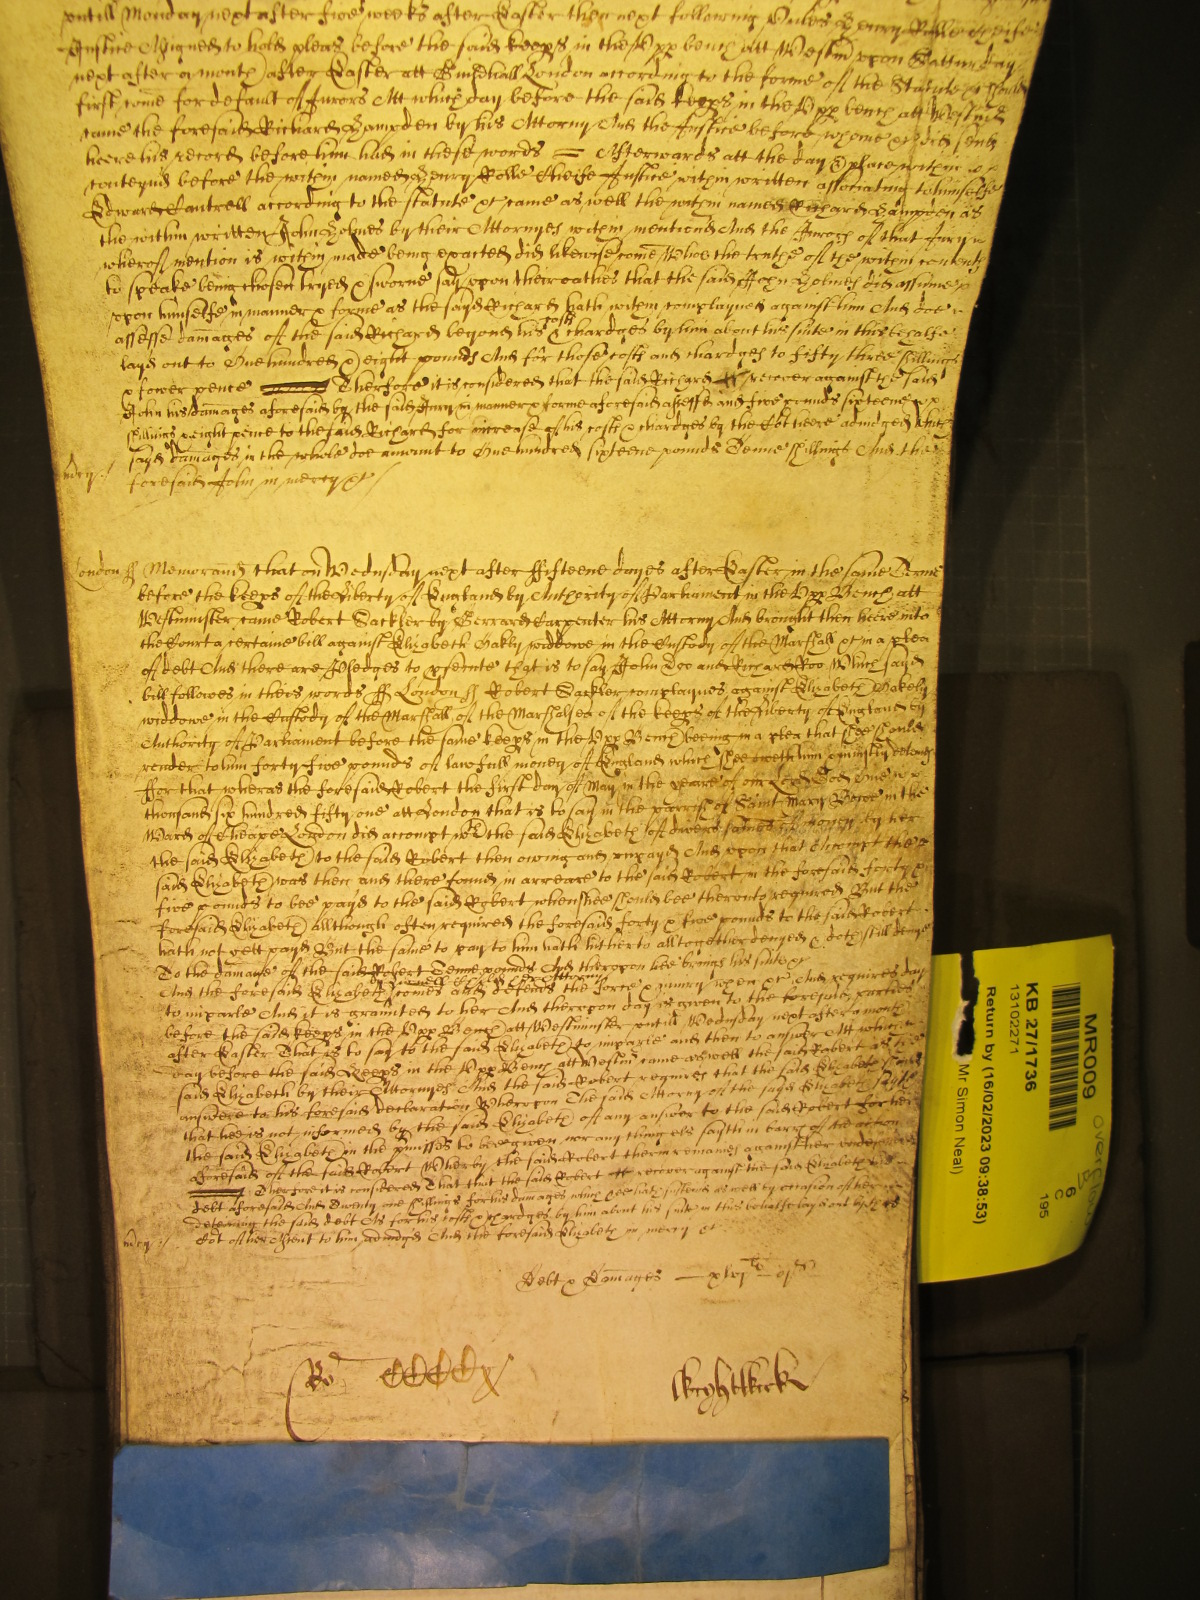 untill Monday next after five weekes after Easter then next following Unles Henry Rolle Cheife
Justice Assigned to hold pleas before the said keeps in the Upp bench Att Westm upon Satturday
next after a month after Easter att Guildhall London according to the forme of the Statute &c should
first come for default of Jurors Att which day before the said keeps in the Upp bench att Westm
came the foresaid Richard Hampden by his Attorny And the Justice before whome &c did send
heere his record before him had in these words = Afterwards att the day & place within
conteyned before the within named Henry Rolle Cheife Justice within written associating to himselfe
Edward Cantrell according to the statute &c came as well the within named Richard Hampden as
the within written John Holmes by their Attornyes within mentioned And the Jurors of that Jury
whereof mention is within made being exacted did likewise come Who to the truthe of the within contents
to speake being chosen tryed & sworne say upon their oathes that the said John Holmes did assume
upon himselfe in manner & forme as the sayd Richard hath within complayned against him And doe
assesse damages of the said Richard beyond his costs & chardges by him about his suite in this behalfe
layd out to One hundred & eight pounds And for those costs and chardges to fifty three shillings
& fower pence Therefore it is considered that the said Richard recover against the said
John his damages aforesaid by the said Jury in manner & forme aforesaid assessed and five pounds sixteene
shillings & eight pence to the said Richard for increase of his costs & chardges by the Cort heere adiudged which
sayd damages in the whole doe amount to One hundred sixteene pounds Tenne shillings And the
foresaid John in mercy &c
mercy
London ss Memorand that on Wednsday next after fifteene dayes after Easter in the same Terme
before the keeps of the Liberty of England by Authority of Parliament in the Upp Bench att
Westminster came Robert Sackler by Gerrard Carpenter his Attorny And brought then heere into
the Court a certaine bill against Elizabeth Oakly widdowe in the Custody of the Marshall &c in a plea
of debt And there are Pledges to prosecute that is to say John Doo and Richard Roo Which sayd
bill followes in theis words ss London ss Robert Sackler complaynes against Elizabeth Oakely
widdowe in the Custody of the Marshall of the Marshalsea of the keeps of the Liberty of England by
Authority of Parliament before the same keeps in the Upp Bench beeing in a plea that shee should
render to him forty five pounds of lawfull money of England which shee oweth him & uniustly deteynes
For that wheras the foresaid Robert the first day of May in the yeare of our Lord God One
thousand six hundred fifty one att London that is to say in the parrish of Saint Mary Bowe in the
Ward of Cheape London did accompt wth the said Elizabeth of divers summes of money by her
the said Elizabeth to the said Robert then owing and unpayd And upon that Accompt the
said Elizabeth was then and there found in arreare to the said Robert in the foresaid forty &
five pounds to bee payd to the said Robert when shee should bee thereunto required But the
foresaid Elizabeth allthough often required the foresaid forty & five pounds to the said Robert
hath not yett payd But the same to pay to him hath hitherto alltogether denyed & doth still deny
To the damage of the said Robert Tenne pounds And therupon hee brings his suite &c
And the foresaid Elizabeth by her Attorny comes and defends the force & iniury when &c And requires day
to imparle And it is graunted to her And therupon day is given to the foresaid parties
before the said keeps in the Upp Bench att Westminster untill Wednsday next after a month
after Easter That is to say to the said Elizabeth to imparle and then to answer Att which
day before the said Keeps in the Upp Bench att Westm came aswell the said Robert as the
said Elizabeth by their Attornyes And the said Robert requires that the said Elizabeth
answere to his foresaid declaration Wherupon The said Attorny of the sayd Elizabeth sayth
that hee is not informed by the said Elizabeth of any answer to the said Robert for her
the said Elizabeth in the pmisses to bee given nor any thing els sayth in barr of the action
aforesaid of the said Robert Wherby the said Robert therin remaines against her undefended
Therefore it is considered That the said Robert recover against the said Elizabeth his
debt aforesaid And Twenty one shillings for his damages which hee hath susteined as well by occasion of the
deteyning the said debt As for his costs & chardges by him about his suite in this behalfe layd out by the
Cort of her Assent to him adiudged And the foresaid Elizabeth in mercy &c
mercy
Debt & Damages — xlvj li – js
Ro CCCCx
Keightleick
MR009
overflow
KB 27/1736
13102271
Return by (16/02/2023 09:38:53)
Mr Simon Neal)
6
C
195